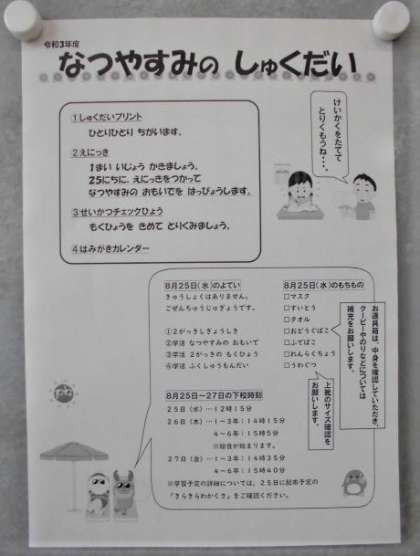 令和3年度
なつやすみの しゅくだい
1しゅくだいプリント
ひとりひとり ちがいます。
2えにっき
1まい いじょう かきましょう。
25にちに、えにっきをつかって
なつやすみの おもいでを はっぴょうします。
3せいかつチェックひょう
もくひょうを きめて とりくみましょう。
4はみがきカレンダー
けいかくをたてて
とりくもうね・・・。
8月25日(水)のよてい
きゅうしょくはありません。
ごぜんちゅうじゅぎょうです。
①2がっきしぎょうしき
②学活 なつやすみの おもいで
③学活 2がっきの もくひょう
④学活 ふくしゅうもんだい
8月25日(水)のもちもの
□マスク
□すいとう
□タオル
□おどうぐばこ
□ふでばこ
□れんらくちょう
□うわぐつ
お道具箱は、中身を確認していただき、
クーピーやのりなどについては
補充をお願いします。
上靴のサイズ確認を
お願いします。
8月25日~27日の下校時刻
25日(水)…12時15分
26日(木)…1~3年:14時15分
4~6年:15時5分
※給食が始まります。
27日(金)…1~3年:14時35分
4~6年:15時40分
※学習予定の詳細については、25日に配布予定の
「きらきらわかくさ」をご確認ください。